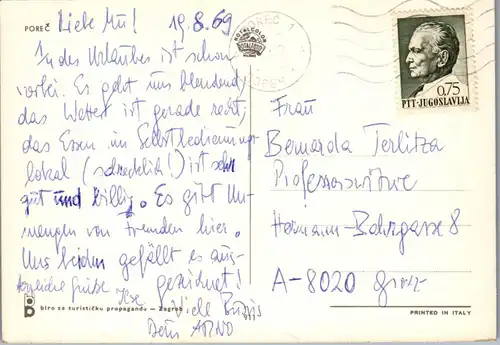 POREČ
Liebe Mu! 19.8.69
In des Urlaubes ist schon
vorbei. Es geht uns blendend,
das Wetter ist gerade recht,
das Essen im Selbstbedienungs-
lokal (schrecklich!) ist sehr
gut und billig. Es gibt Un-
mengen von Fremden hier.
Uns beiden gefällt es aus-
gezeichnet!
herzliche Grüße Ilse
Viele Bussis
Dein ARNO
biro za turističku propagandu — Zagreb
0.75
PTT-JUGOSLAVIJA
Frau
Bernarda Terlitza
Professorswitwe
Hermann-Bahrgasse 8
A-8020 Graz
PRINTED IN ITALY